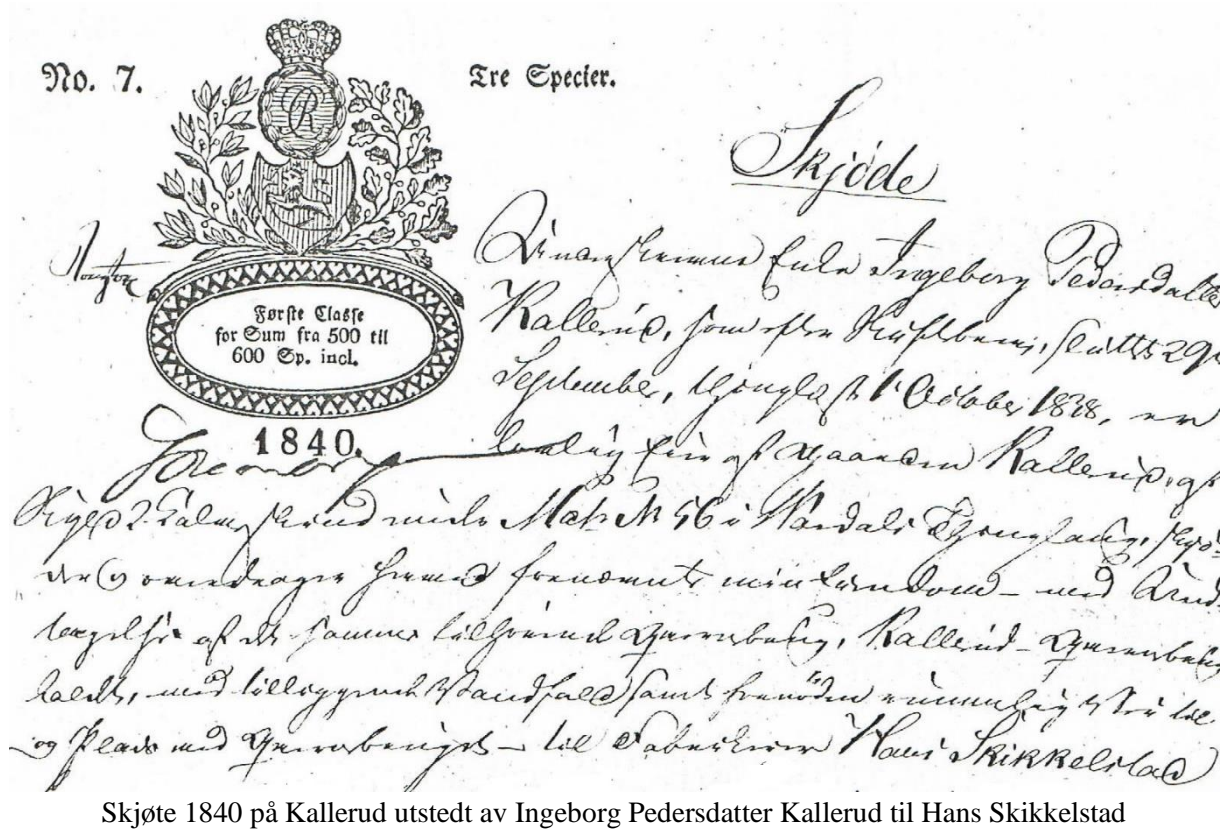 No. 7.
Tre Specier.
R
Skjøde
Første Classe
for Sum fra 500 til
600 Sp. incl.
1840.
Underskrevne Enke Ingeborg Pedersdatter
Kallerud, som efter Skiftebrev, sluttet 29de
September, thinglæst 1 October 1838, er
lovlig Eier af Gaarden Kallerud, af
Skyld 2 Kalveskind under Matr № 56 i Vardals Thinglaug, skjø-
der og overdrager herved forenævnte min Eiendom – med Und-
tagelse af det samme tilhørende Qværnbrug, Kallerud-Qværnbrug
kaldt, med tilliggende Vandfald samt fornöden Vei til
og Plads ved Qværnbruget – til Hans Skikkelstad
Skjøte 1840 på Kallerud utstedt av Ingeborg Pedersdatter Kallerud til Hans Skikkelstad